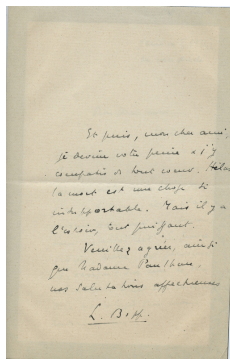 Et puis, mon cher ami,
je devine votre peine et j'y
compatis de tout coeur. Hélas
la mort est une chose si
insupportable. Mais il y a
tout puissant.
Veuillez agréer, ainsi
que Madame
nos salutations affectueuses
L. B